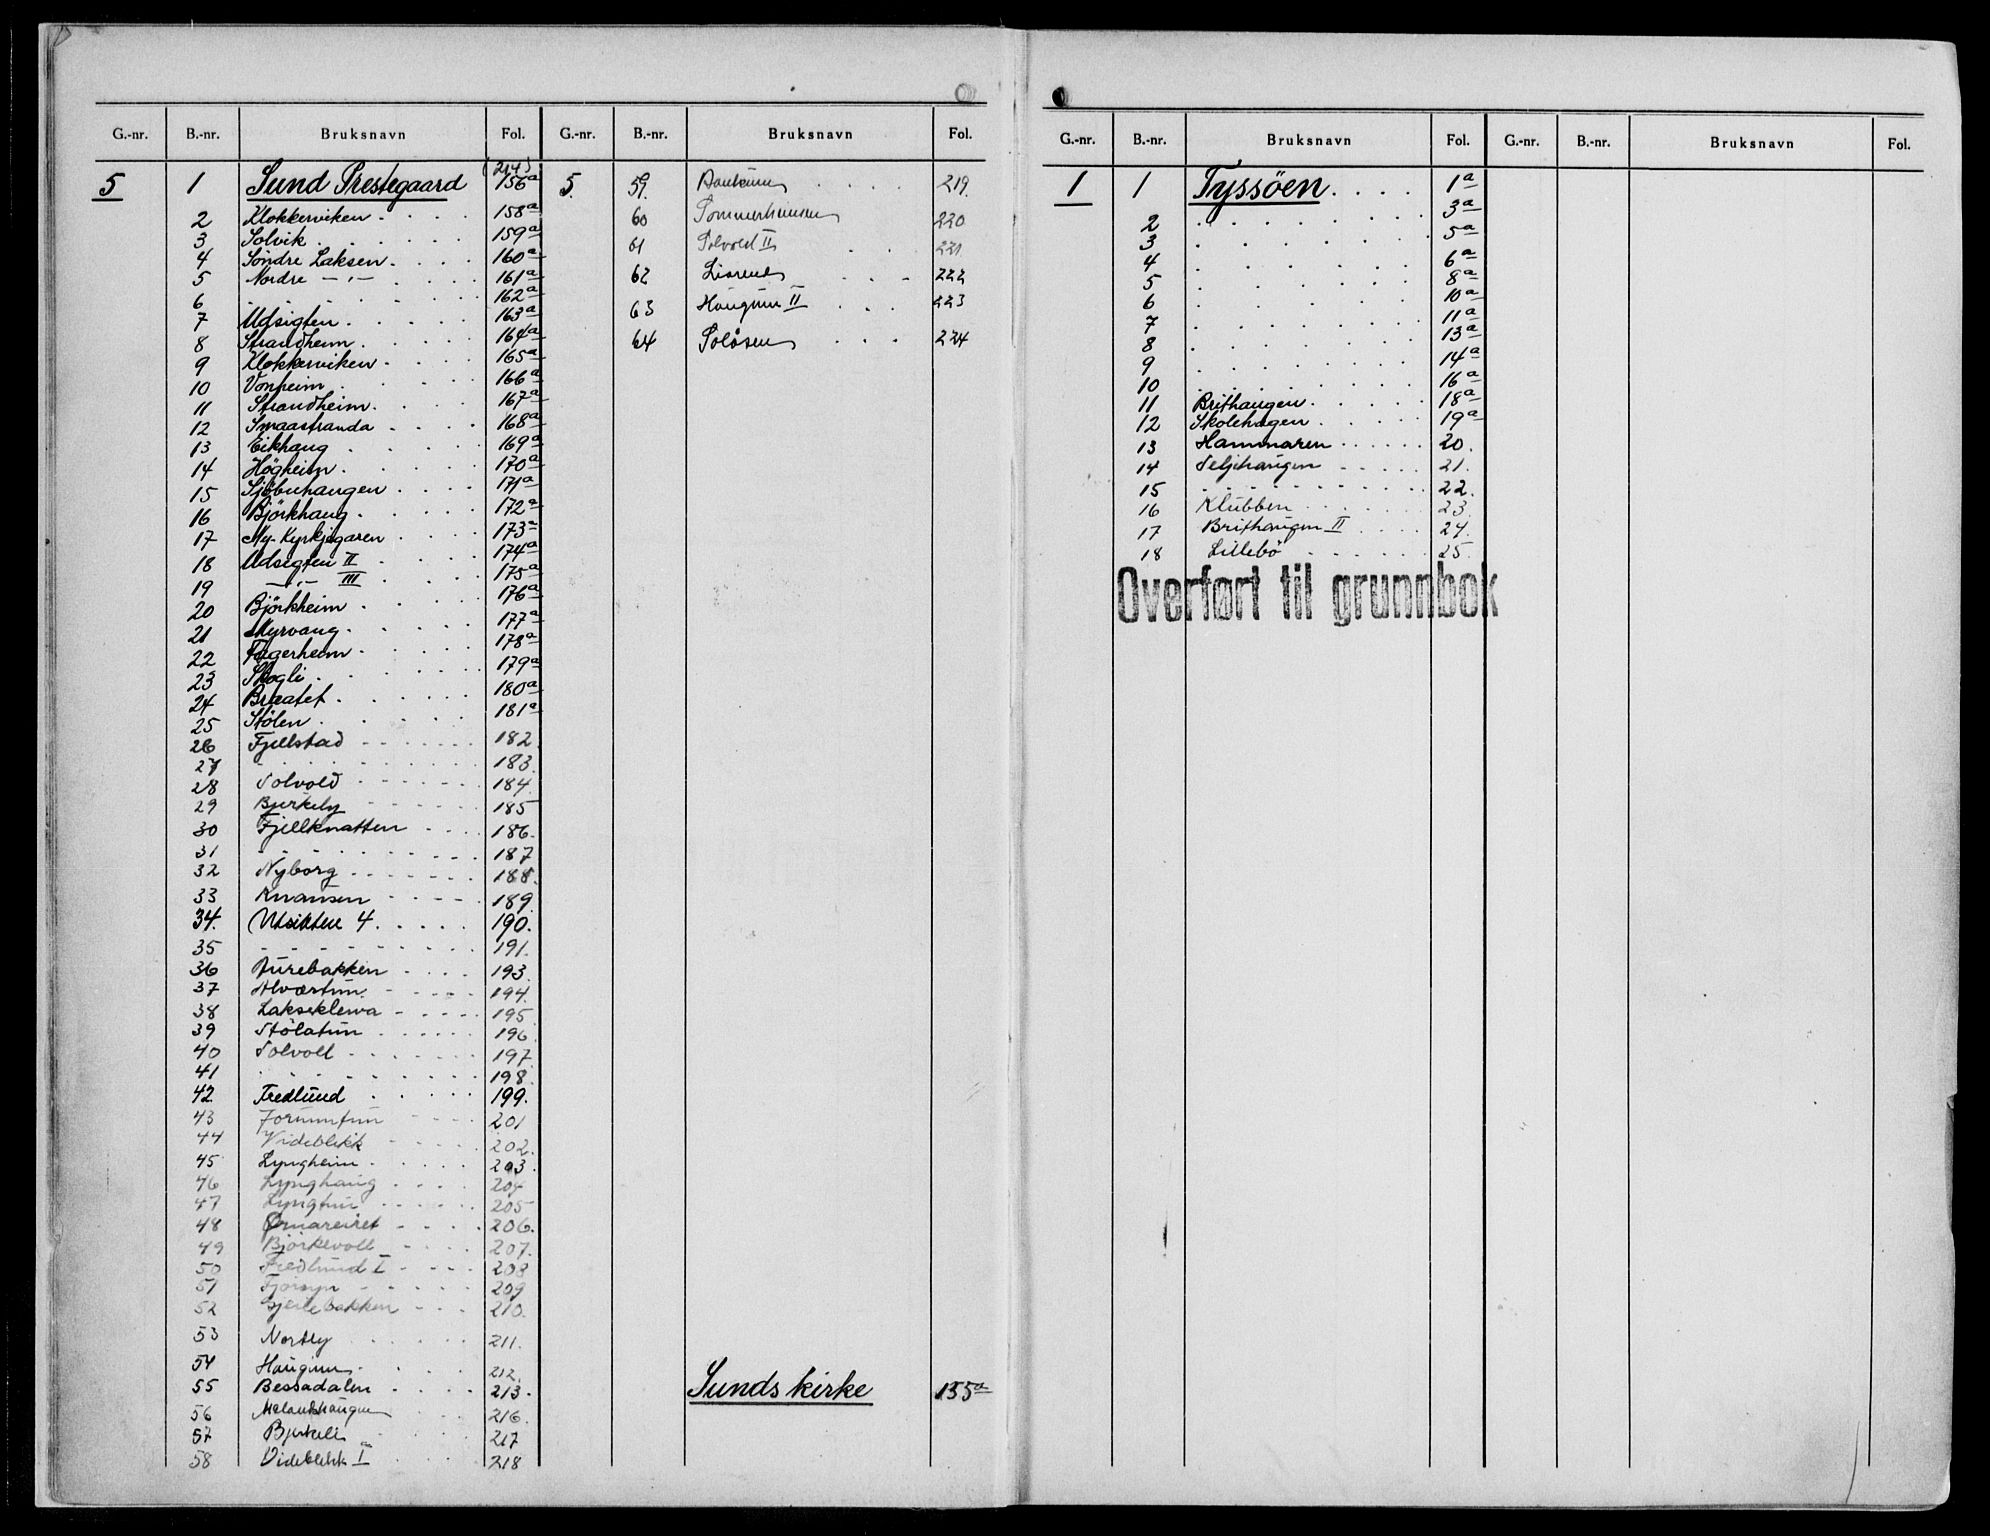 G.-nr. B.-nr. Bruksnavn Fol. G.-nr. B.-nr. Bruksnavn Fol.
(214)
5 1 Sund Prestegaard 156a
2 Klokkerviken 158a
3 Solvik 159a
4 Söndre Laksen 160a
5 Nordre -"- 161a
6 162a
7 Udsigten 163a
8 Strandheim 164a
9 Klokkerviken 165a
10 Vonheim 166a
11 Strandheim 167a
12 Smaastranda 168a
13 Eikhaug 169a
14 Högheim 170a
15 Sjöbuhaugen 171a
16 Björkhaug 172a
17 Ny-Kyrkjegaren 173a
18 Udsigten II 174a
19 -"- III 175a
20 Björkheim 176a
21 Myrvang 177a
22 Fagerheim 178a
23 Skogli 179a
24 Braatet 180a
25 Stölen 181a
26 Fjellstad 182
27 183
28 Solvold 184
29 Bjerkely 185
30 Fjellknatten 186
31 187
32 Nyborg 188
33 Knausen 189
34. Utsikten 4 190.
35 191.
36 Furebakken 193
37 Alvartun 194
38 Lakseklewa 195
39 Stölatun 196
40 Solvoll 197
41 198
42 Fredlund 199.
43 Jorunntun 201
44 Videblikk 202
45 Lyngheim 203
46 Lynghaug 204
47 Lyngtun 205
48 Ørnareiret 206.
49 Björkevoll 207.
50 Fredlund I 208
51 Fjorsyn 209
52 210.
53 Nortly 211.
54 Haugum 212.
55 Bessadalen 213.
56 216.
57 Bjerkeli 217
58 Videblikk I 218
5. 59. 219.
60 220
61 Solvold II 221
62 222
63 Haugum II 223
64 Soløsen 224
Sunds kirke 155a
G.-nr. B.-nr. Bruksnavn Fol. G.-nr. B.-nr. Bruksnavn Fol.
1 1 Tyssöen 1a
2 3a
3 5a
4 6a
5 8a
6 10a
7 11a
8 13a
9 14a
10 16a
11 Brithaugen 18a
12 Skolehagen 19a
13 Hammaren 20.
14 Seljehaugen 21.
15 22.
16 Klubben 23.
17 Brithaugen II 24.
18 Lillebö 25.
Overført til grunnbok